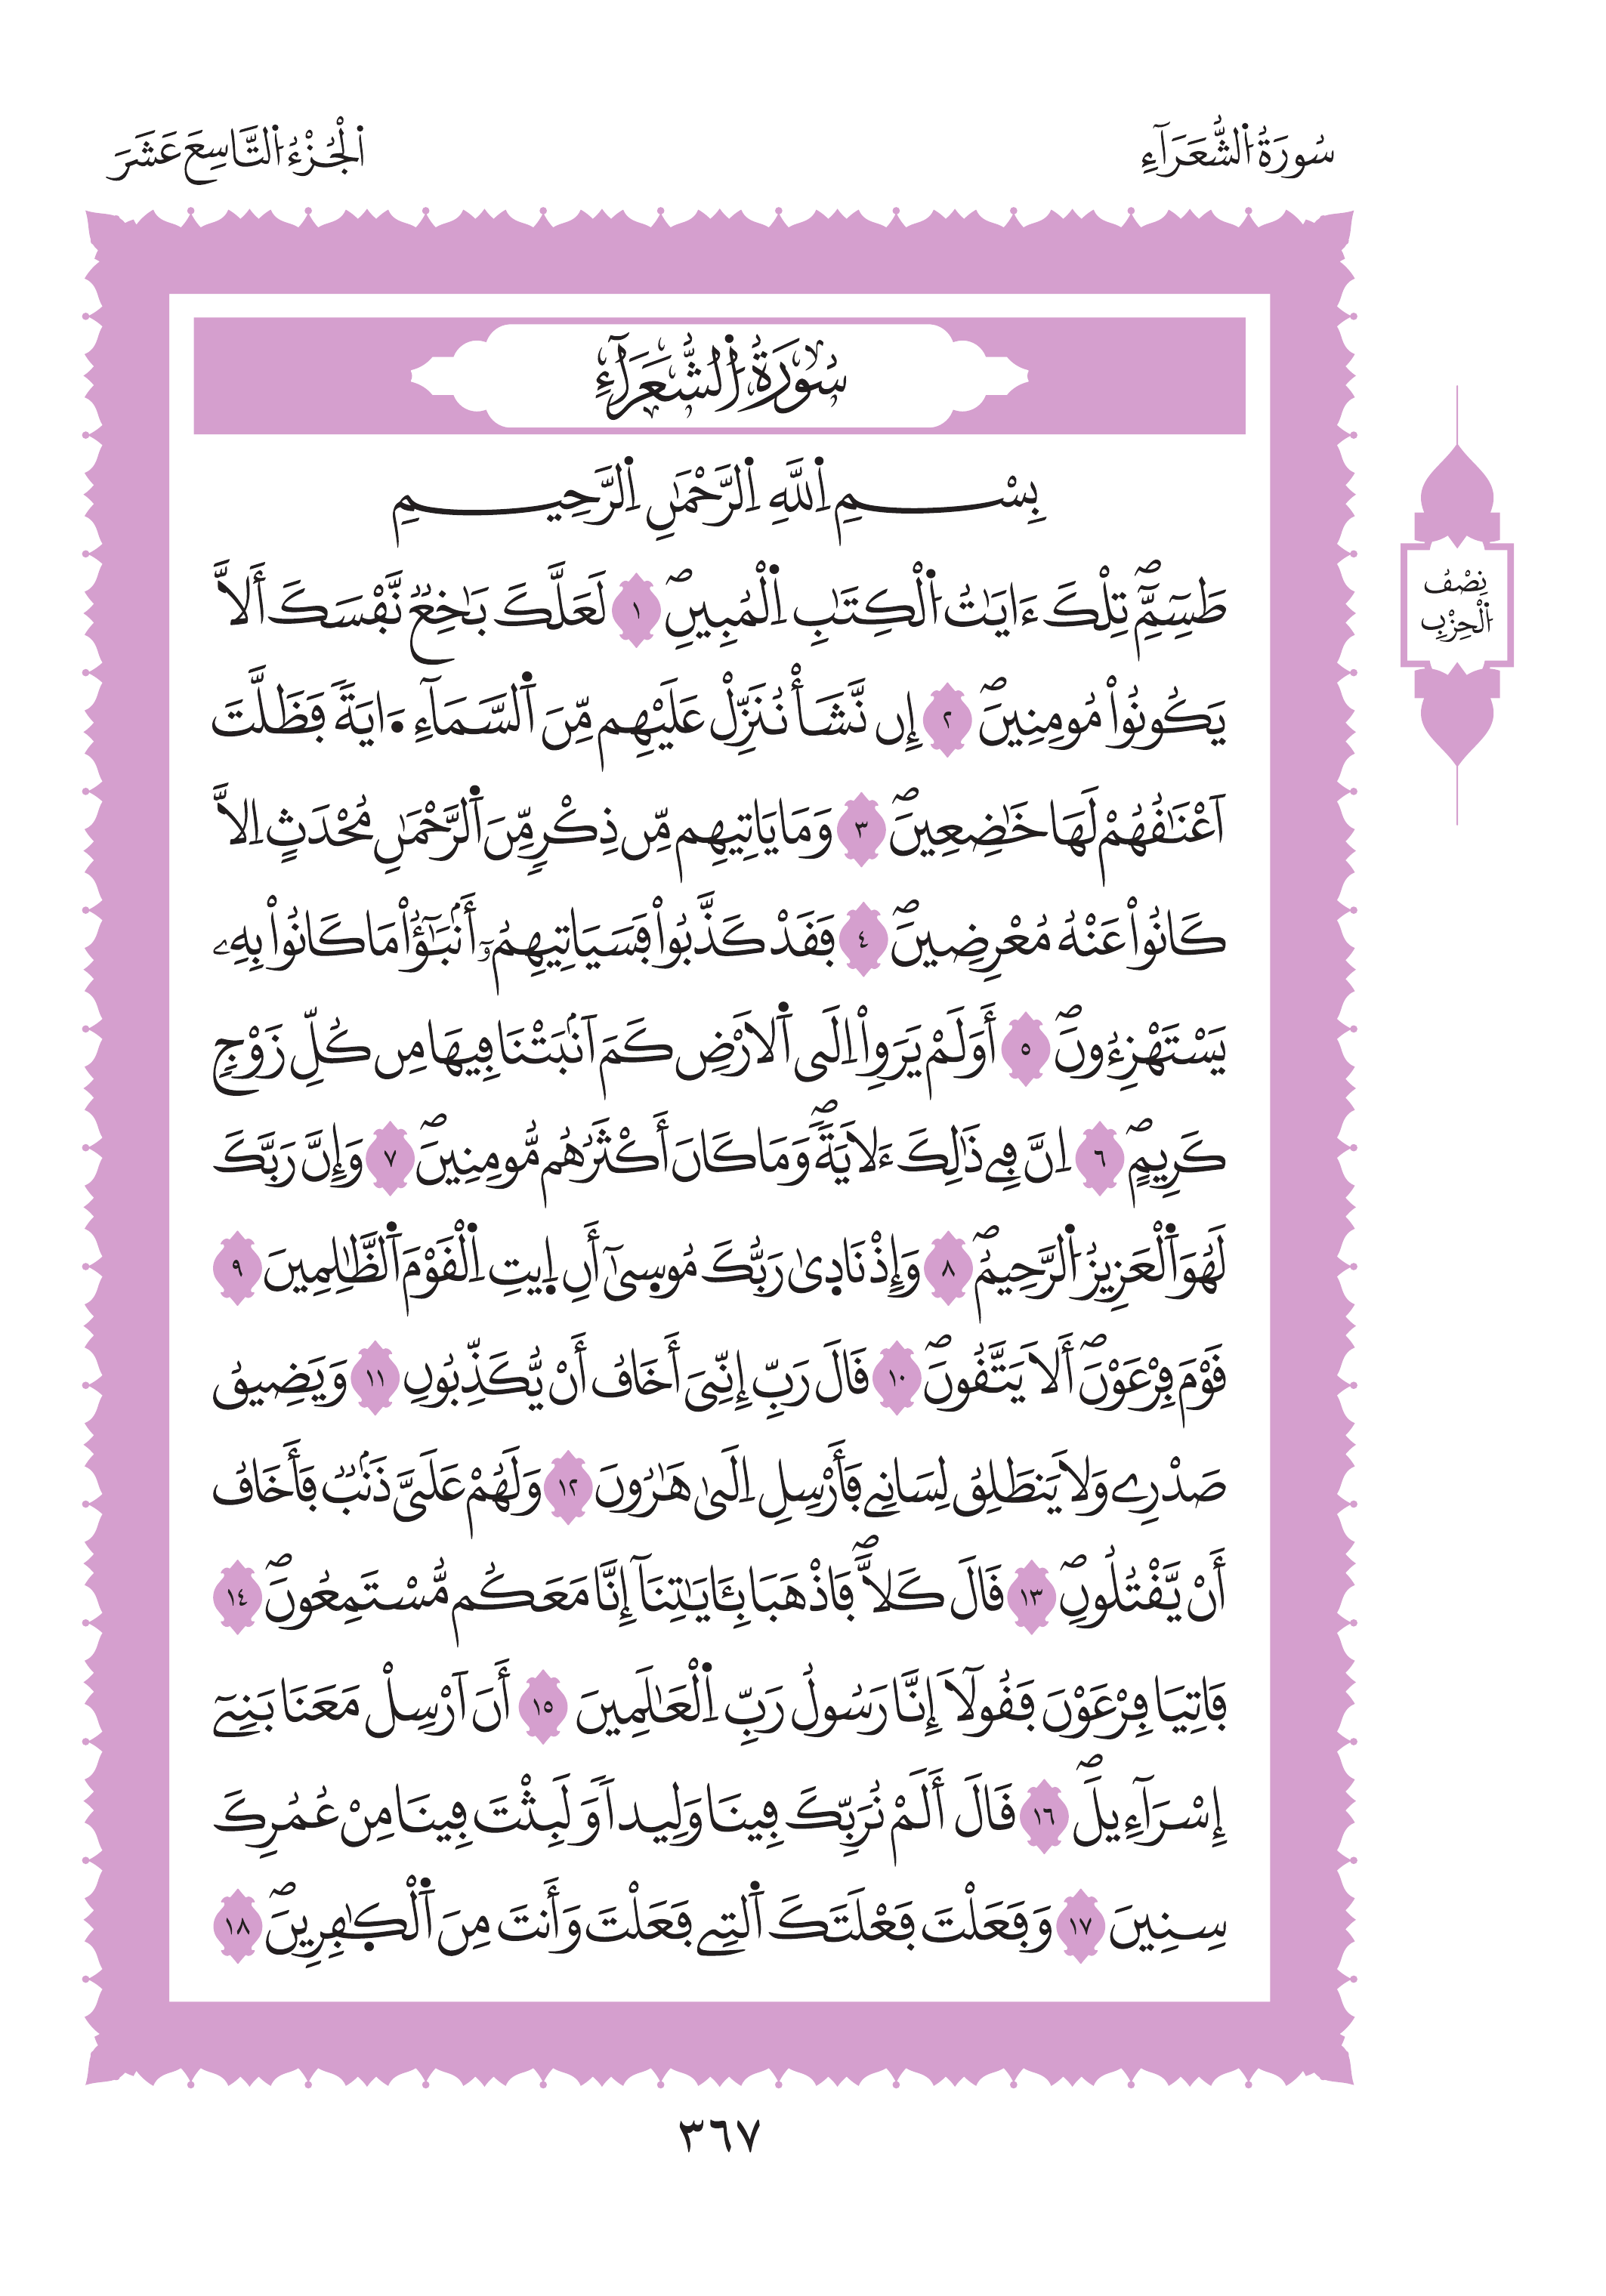 سُورَةُ اُ۬لشُّعَرَآءِ
اُ۬لْجُزْءُ اُ۬لتَّاسِعَ عَشَرَ
سُورَةُ اُ۬لشُّعَرَآءِ
بِسْمِ اِ۬للَّهِ اِ۬لرَّحْمَٰنِ اِ۬لرَّحِيمِ
نِصْفُ
اُ۬لْحِزْبِ
طَسِٓمِّٓۖ تِلْكَ ءَايَٰتُ اُ۬لْكِتَٰبِ اِ۬لْمُبِينِۖ ١ لَعَلَّكَ بَٰخِعٞ نَّفْسَكَ أَلَّا
يَكُونُواْ مُومِنِينَۖ ٢ إِن نَّشَأْ نُنَزِّلْ عَلَيْهِم مِّنَ اَ۬لسَّمَآءِ • ايَةٗ فَظَلَّتَ
اَعْنَٰقُهُمْ لَهَا خَٰضِعِينَۖ ٣ وَمَا يَاتِيهِم مِّن ذِكْرٖ مِّنَ اَ۬لرَّحْمَٰنِ مُحْدَثٍ اِلَّا
كَانُواْ عَنْهُ مُعْرِضِينَۖ ٤ فَقَدْ كَذَّبُواْ فَسَيَاتِيهِمُۥٓ أَنۢبَٰٓؤُاْ مَا كَانُواْ بِهِۦ
يَسْتَهْزِءُونَۖ ٥ أَوَلَمْ يَرَوِاْ اِلَى اَ۬لَارْضِ كَمَ اَنۢبَتْنَا فِيهَا مِن كُلِّ زَوْجٖ
كَرِيمٍۖ ٦ اِنَّ فِے ذَٰلِكَ ءَلَايَةٗۖ وَمَا كَانَ أَكْثَرُهُم مُّومِنِينَۖ ٧ وَإِنَّ رَبَّكَ
لَهُوَ اَ۬لْعَزِيزُ اُ۬لرَّحِيمُۖ ٨ وَإِذْ نَادٜىٰ رَبُّكَ مُوسٜىٰٓ أَنِ اِ۪يتِ اِ۬لْقَوْمَ اَ۬لظَّٰلِمِينَ ٩
قَوْمَ فِرْعَوْنَۖ أَلَا يَتَّقُونَۖ ١٠ قَالَ رَبِّ إِنِّىَ أَخَافُ أَنْ يُّكَذِّبُونِ ١١ وَيَضِيقُ
صَدْرِے وَلَا يَنطَلِقُ لِسَانِے فَأَرْسِلِ اِلَىٰ هَٰرُونَ ١٢ وَلَهُمْ عَلَىَّ ذَنۢبٞ فَأَخَافُ
أَنْ يَّقْتُلُونِۖ ١٣ قَالَ كَلَّاۖ فَاذْهَبَا بِـَٔايَٰتِنَآ إِنَّا مَعَكُم مُّسْتَمِعُونَۖ ١٤
فَاتِيَا فِرْعَوْنَ فَقُولَآ إِنَّا رَسُولُ رَبِّ اِ۬لْعَٰلَمِينَ ١٥ أَنَ اَرْسِلْ مَعَنَا بَنِےٓ
إِسْرَآءِيلَۖ ١٦ قَالَ أَلَمْ نُرَبِّكَ فِينَا وَلِيداٗ وَلَبِثْتَ فِينَا مِنْ عُمُرِكَ
سِنِينَ ١٧ وَفَعَلْتَ فَعْلَتَكَ اَ۬لتِے فَعَلْتَ وَأَنتَ مِنَ اَ۬لْكٰٜفِرِينَۖ ١٨
٣٦٧